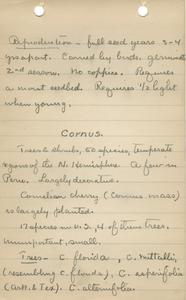 Reproduction - full seed years 3-4
yrs apart. Carried by birds. germinate
2nd season. No coppice. Requires
a moist seedbed. Requires 1/2 light
when young.
Cornus.
Trees & shrubs, 50 species, temperate
regions of the N. Hemisphere. A few in
Peru. Largely decorative.
Cornelian cherry (Cornus mass)
is largely planted.
17 species in U.S., 4 of these trees.
Unimportant, small.
Trees - C. florida, C. nuttallii,
(resembling C. florida), C. asperifolia
(Ark. & Tex). C. alternifolia.